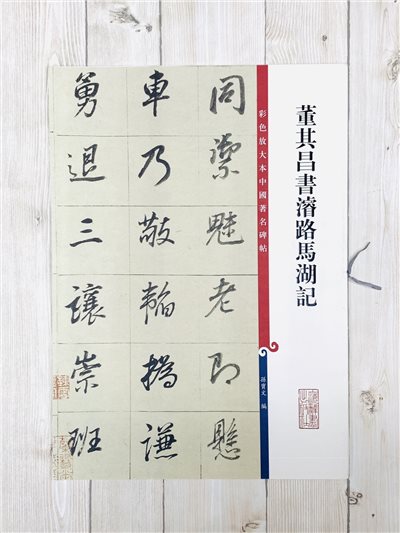 董其昌書濬路馬湖記
彩色放大本中國著名碑帖
孫寶文 編
同潔魁老即懸
車乃敬韜撝謙
勇退三讓崇班